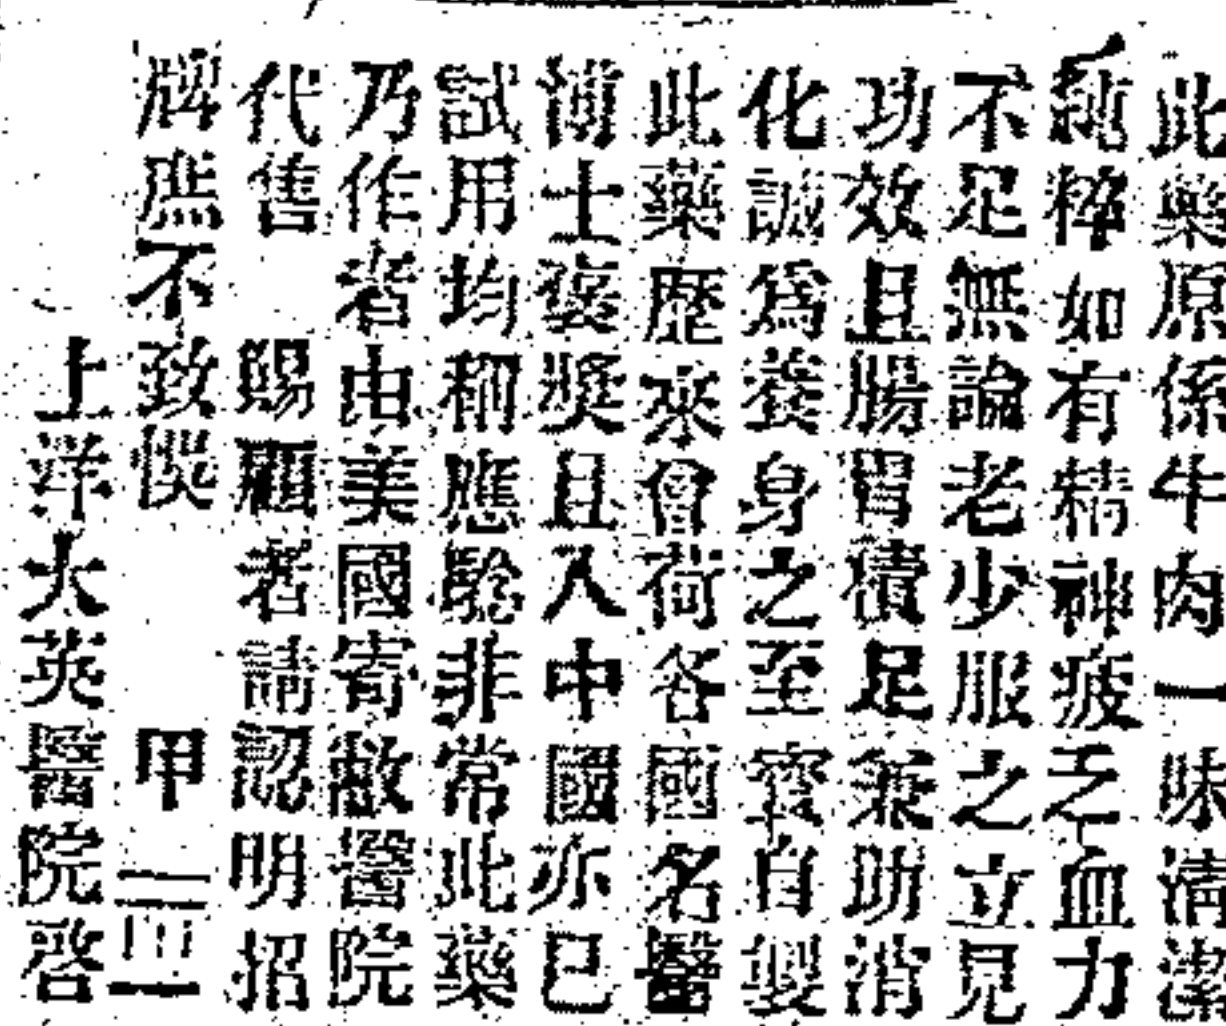 此藥原係牛肉一味清潔
純粹如有精神疲乏血力
不足無論老少服之立見
功效且腸胃積足兼助消
化誠為養身之至寶自製
此藥歷來曾荷各國名醫
博士褒獎且入中國亦已
試用均稱應驗非常此藥
乃作者由美國寄敝醫院
代售 賜顧者請認明招
牌庶不致悞 甲 二四一
上洋大英醫院啓